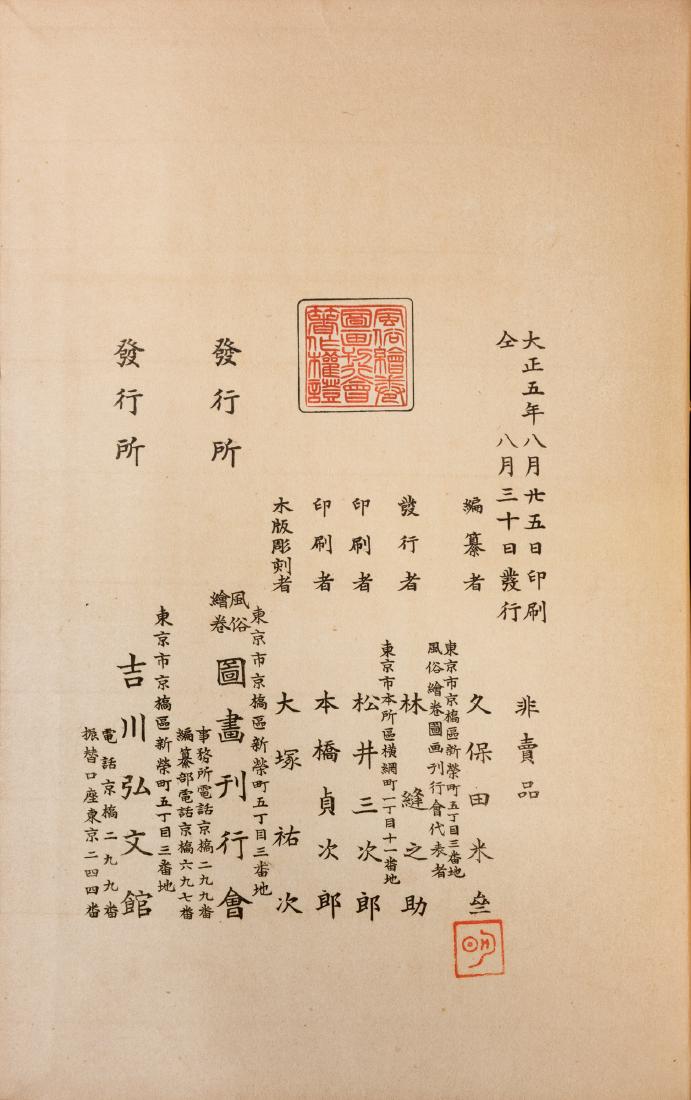 大正五年八月廿五日印刷
仝八月三十日發行
非賣品
編纂者 久保田米叁
東京市京橋區新榮町五丁目三番地
風俗繪卷圖画刊行會代表者
發行者 林縫之助
東京市本所區横網町一丁目十一番地
印刷者 松井三次郎
印刷者 本橋貞次郎
木版彫刻者 大塚祐次
風俗繪卷
圖畫刊行會
著作權證
東京市京橋區新榮町五丁目三番地
發行所 風俗繪卷圖畫刊行會
事務所電話京橋二九九番
編纂部電話京橋六九七番
東京市京橋區新榮町五丁目三番地
發行所 吉川弘文館
電話京橋二九九番
振替口座東京二四四番